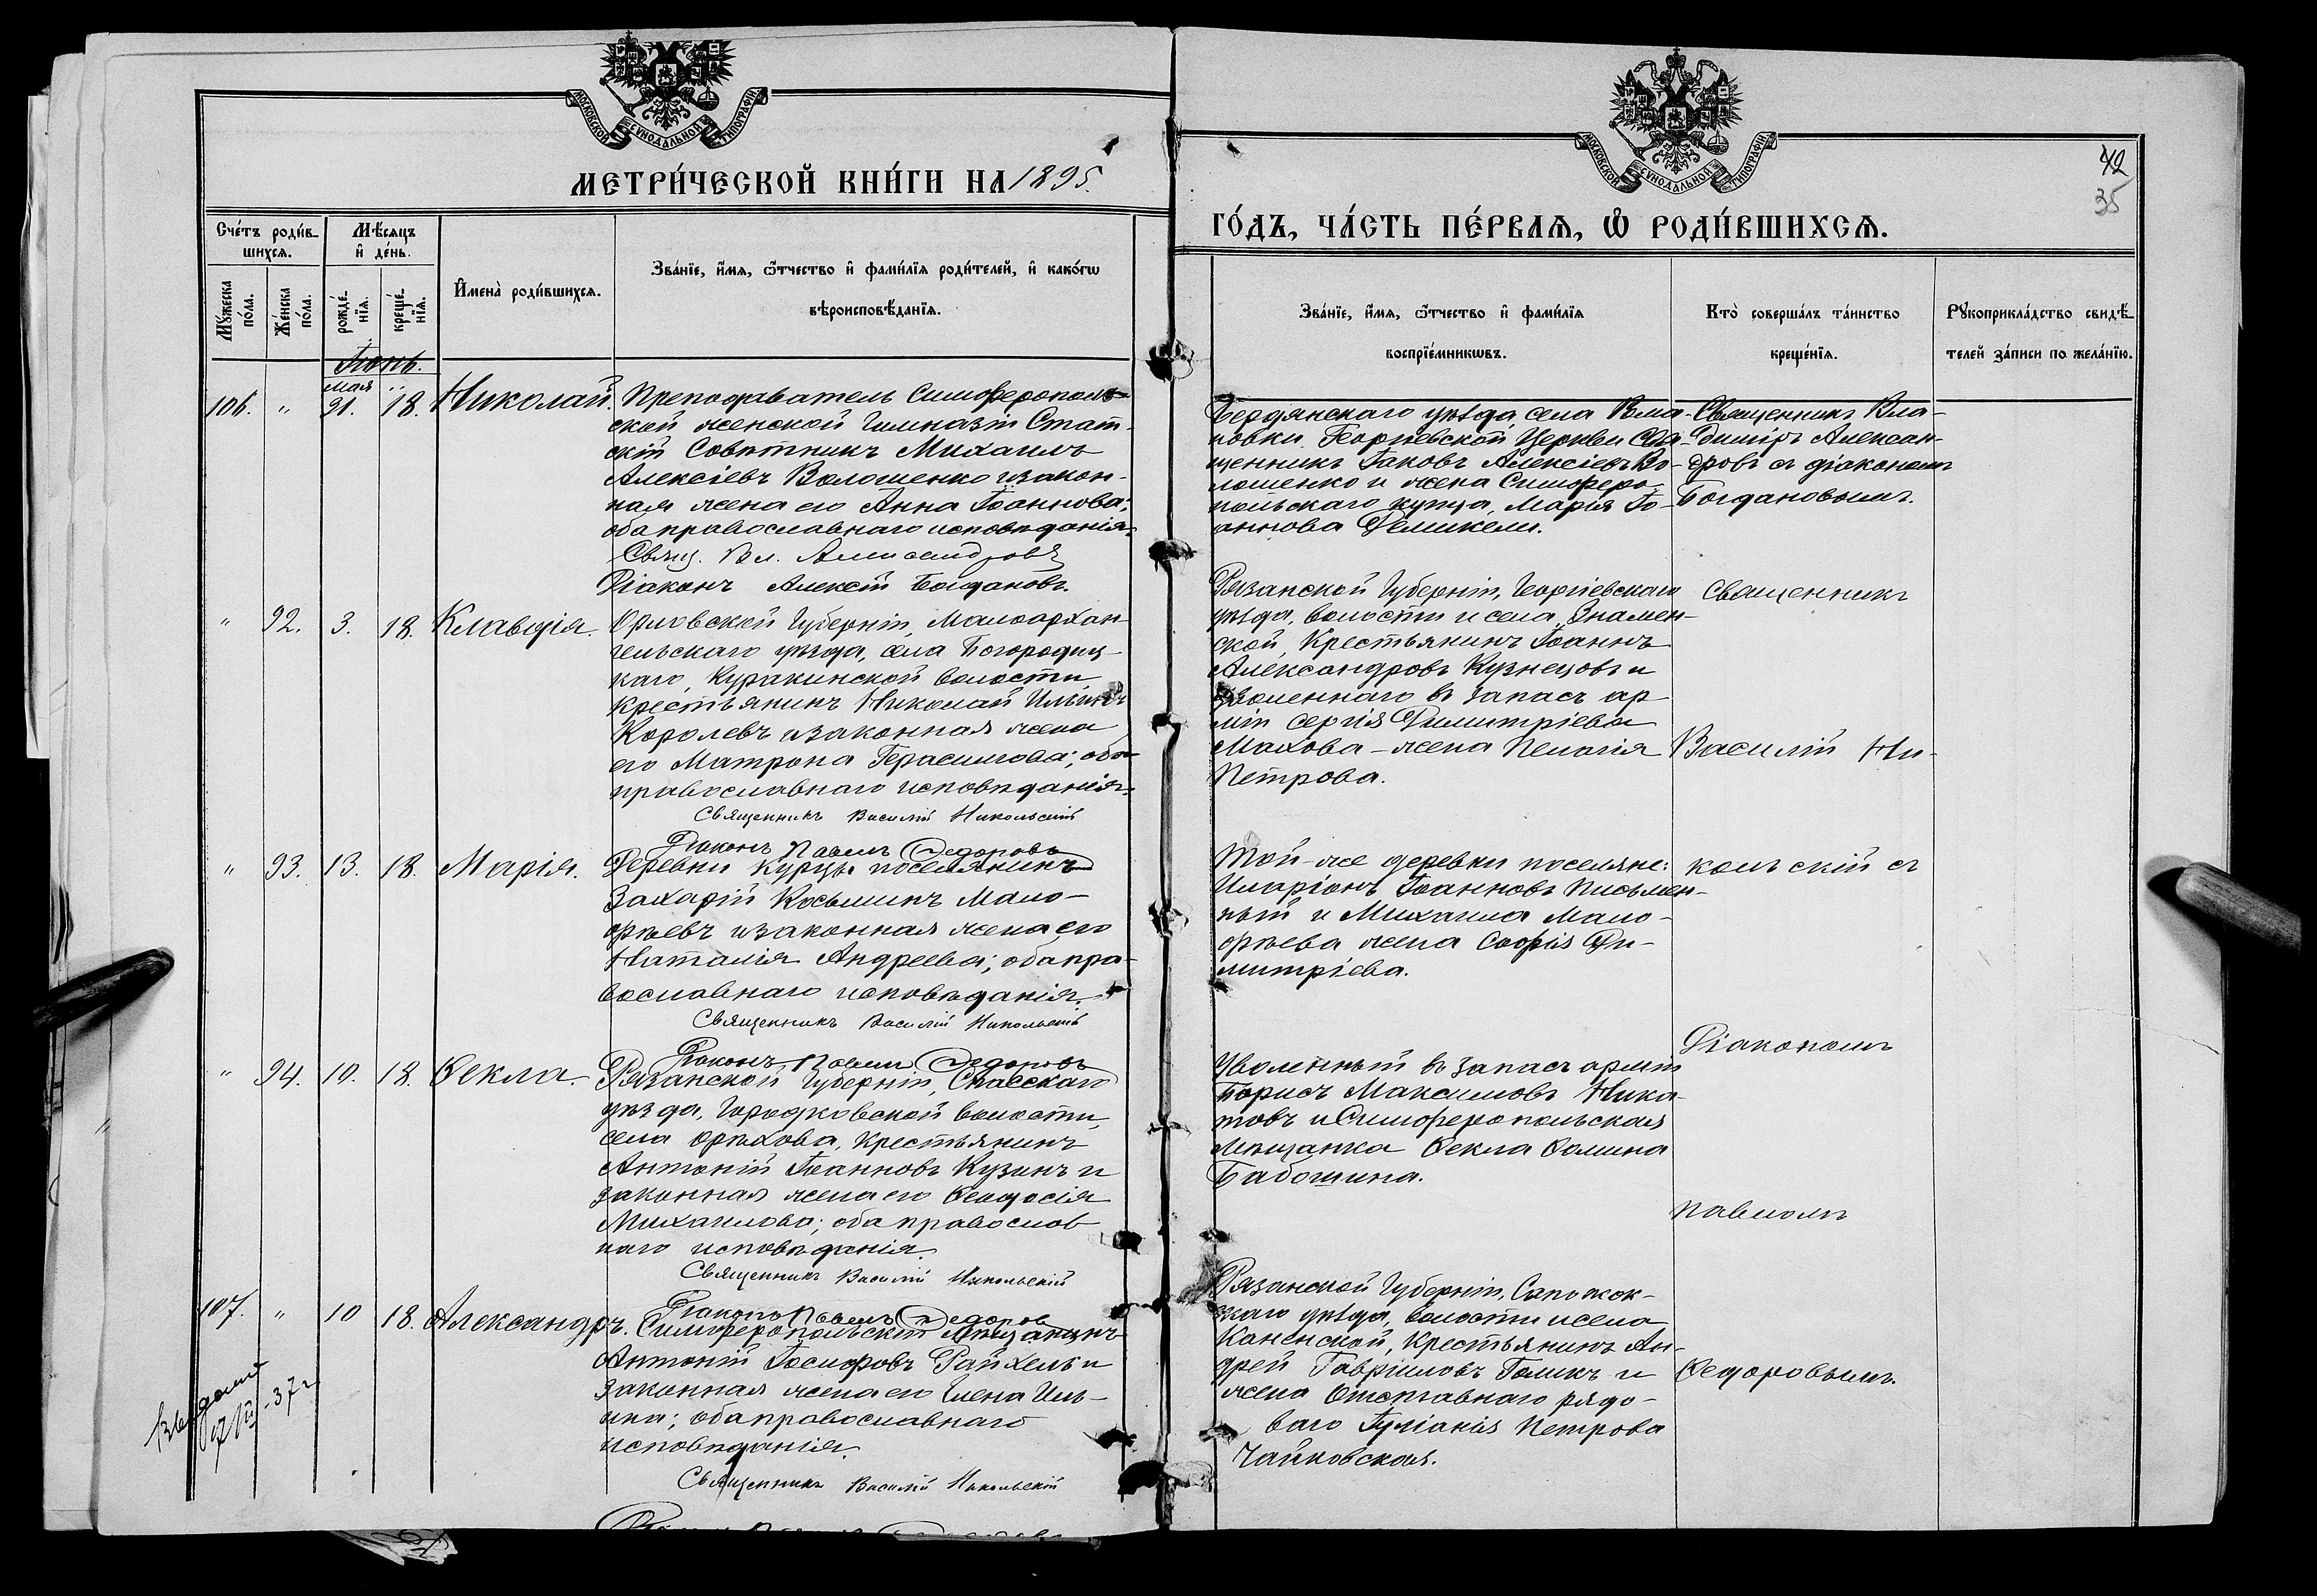 МОСКОВСКОЙ СѴНОДАЛЬНОЙ ТИПОГРАФІИ
МЕТРИ́ЧЕСКОЙ КНИ́ГИ НА 1895.
Сче́тъ роди́в-
шихсѧ.
Мѣ́сѧцъ
и҆ де́нь.
И҆мена̀ роди́вшихсѧ.
Зва́нїе, и҆́мѧ, ѻ҆́тчество и҆ фами́лїѧ роди́телей, и҆ како́гѡ
вѣроисповѣ́данїѧ.
Мꙋ́жеска по́ла.
Же́нска по́ла.
рожде́-
нїѧ.
креще́-
нїѧ.
Іюнь.
106. " мая 31. 18. Николай.
Преподаватель Симферополь-
ской женской Гимназіи Стат-
скій Совѣтникъ Михаилъ
Алексіевъ Волошенко и закон-
ная жена его Анна Іоаннова;
оба православнаго исповѣданія.
Свящ. Вл. Александровъ
Діаконъ Алексій Богдановъ.
" 92. 3. 18. Клавдія.
Орловской Губерніи, Малоархан-
гельскаго уѣзда, села Богородиц-
каго, Куракинской волости,
крестьянинъ Николай Ильинъ
Королевъ и законная жена
его Матрона Герасимова; оба
православнаго исповѣданія.
Священникъ Василій Никольскій
Діаконъ Павелъ Ѳедоровъ
" 93. 13. 18. Марія.
Деревни Курцы поселянинъ
Захарій Косьминъ Мало-
фѣевъ и законная жена его
Наталія Андреева; оба пра-
вославнаго исповѣданія.
Священникъ Василій Никольскій
Діаконъ Павелъ Ѳедоровъ
" 94. 10. 18. Ѳекла.
Рязанской Губерніи, Спасскаго
уѣзда, Городковской волости,
села Орѣхова, крестьянинъ
Антоній Іоанновъ Кузинъ и
законная жена его Ѳеодосія
Михаилова; оба православ-
наго исповѣданія.
Священникъ Василій Никольскій
Діаконъ Павелъ Ѳедоровъ
107. " 10 18. Александръ.
Симферопольскій Мѣщанинъ
Антоній Іосифовъ Райхель и
законная жена его Елена Иль-
ина; оба православнаго
исповѣданія.
Священникъ Василій Никольскій
-37 г.
МОСКОВСКОЙ СѴНОДАЛЬНОЙ ТИПОГРАФІИ
42
35
ГО́ДЪ, ЧА́СТЬ ПЕ́РВАѦ, Ѡ҆ РОДИ́ВШИХСѦ.
Зва́нїе, и҆́мѧ, ѻ҆́тчество и҆ фами́лїѧ
воспрїе́мникѡвъ.
Кто̀ соверша́лъ та́инство
креще́нїѧ.
Рꙋкоприкла́дство свидѣ́-
телей за́писи по жела́нїю.
Бердянскаго уѣзда, села
новки, Георгіевской Церкви Свя-
щенникъ Іаковъ Алексіевъ Во-
лошенко и жена Симферо-
польскаго купца, Марія Іо-
аннова Демикели.
Священникъ Вла-
димиръ Алексан-
дровъ съ діакономъ
Богдановымъ.
Рязанской Губерніи, Георгіевскаго
уѣзда, волости и села Знамен-
ской, Крестьянинъ Іоаннъ
Александровъ Кузнецовъ и
уволеннаго въ запасъ ар-
міи Сергія Димитріева
Махова - жена Пелагія
Петрова.
Священникъ
Василій Ни-
Той-же деревни поселяне:
Иларіонъ Іоанновъ Письмен-
ный и Михаила Мало-
фѣева жена Софія Ди-
митріева.
кольскій съ
Діакономъ
Уволенный въ запасъ арміи
Борисъ Максимовъ Ника-
товъ и Симферопольская
Мѣщанка Ѳекла Ѳомина
Бабошина.
Павломъ
Рязанской Губерніи, Сапожок-
скаго уѣзда, волости и села
Канинской, Крестьянинъ Ан-
дрей Гавріиловъ Голикъ и
жена Отставнаго рядо-
ваго Іуліанія Петрова
Чайковская.
Ѳедоровымъ.